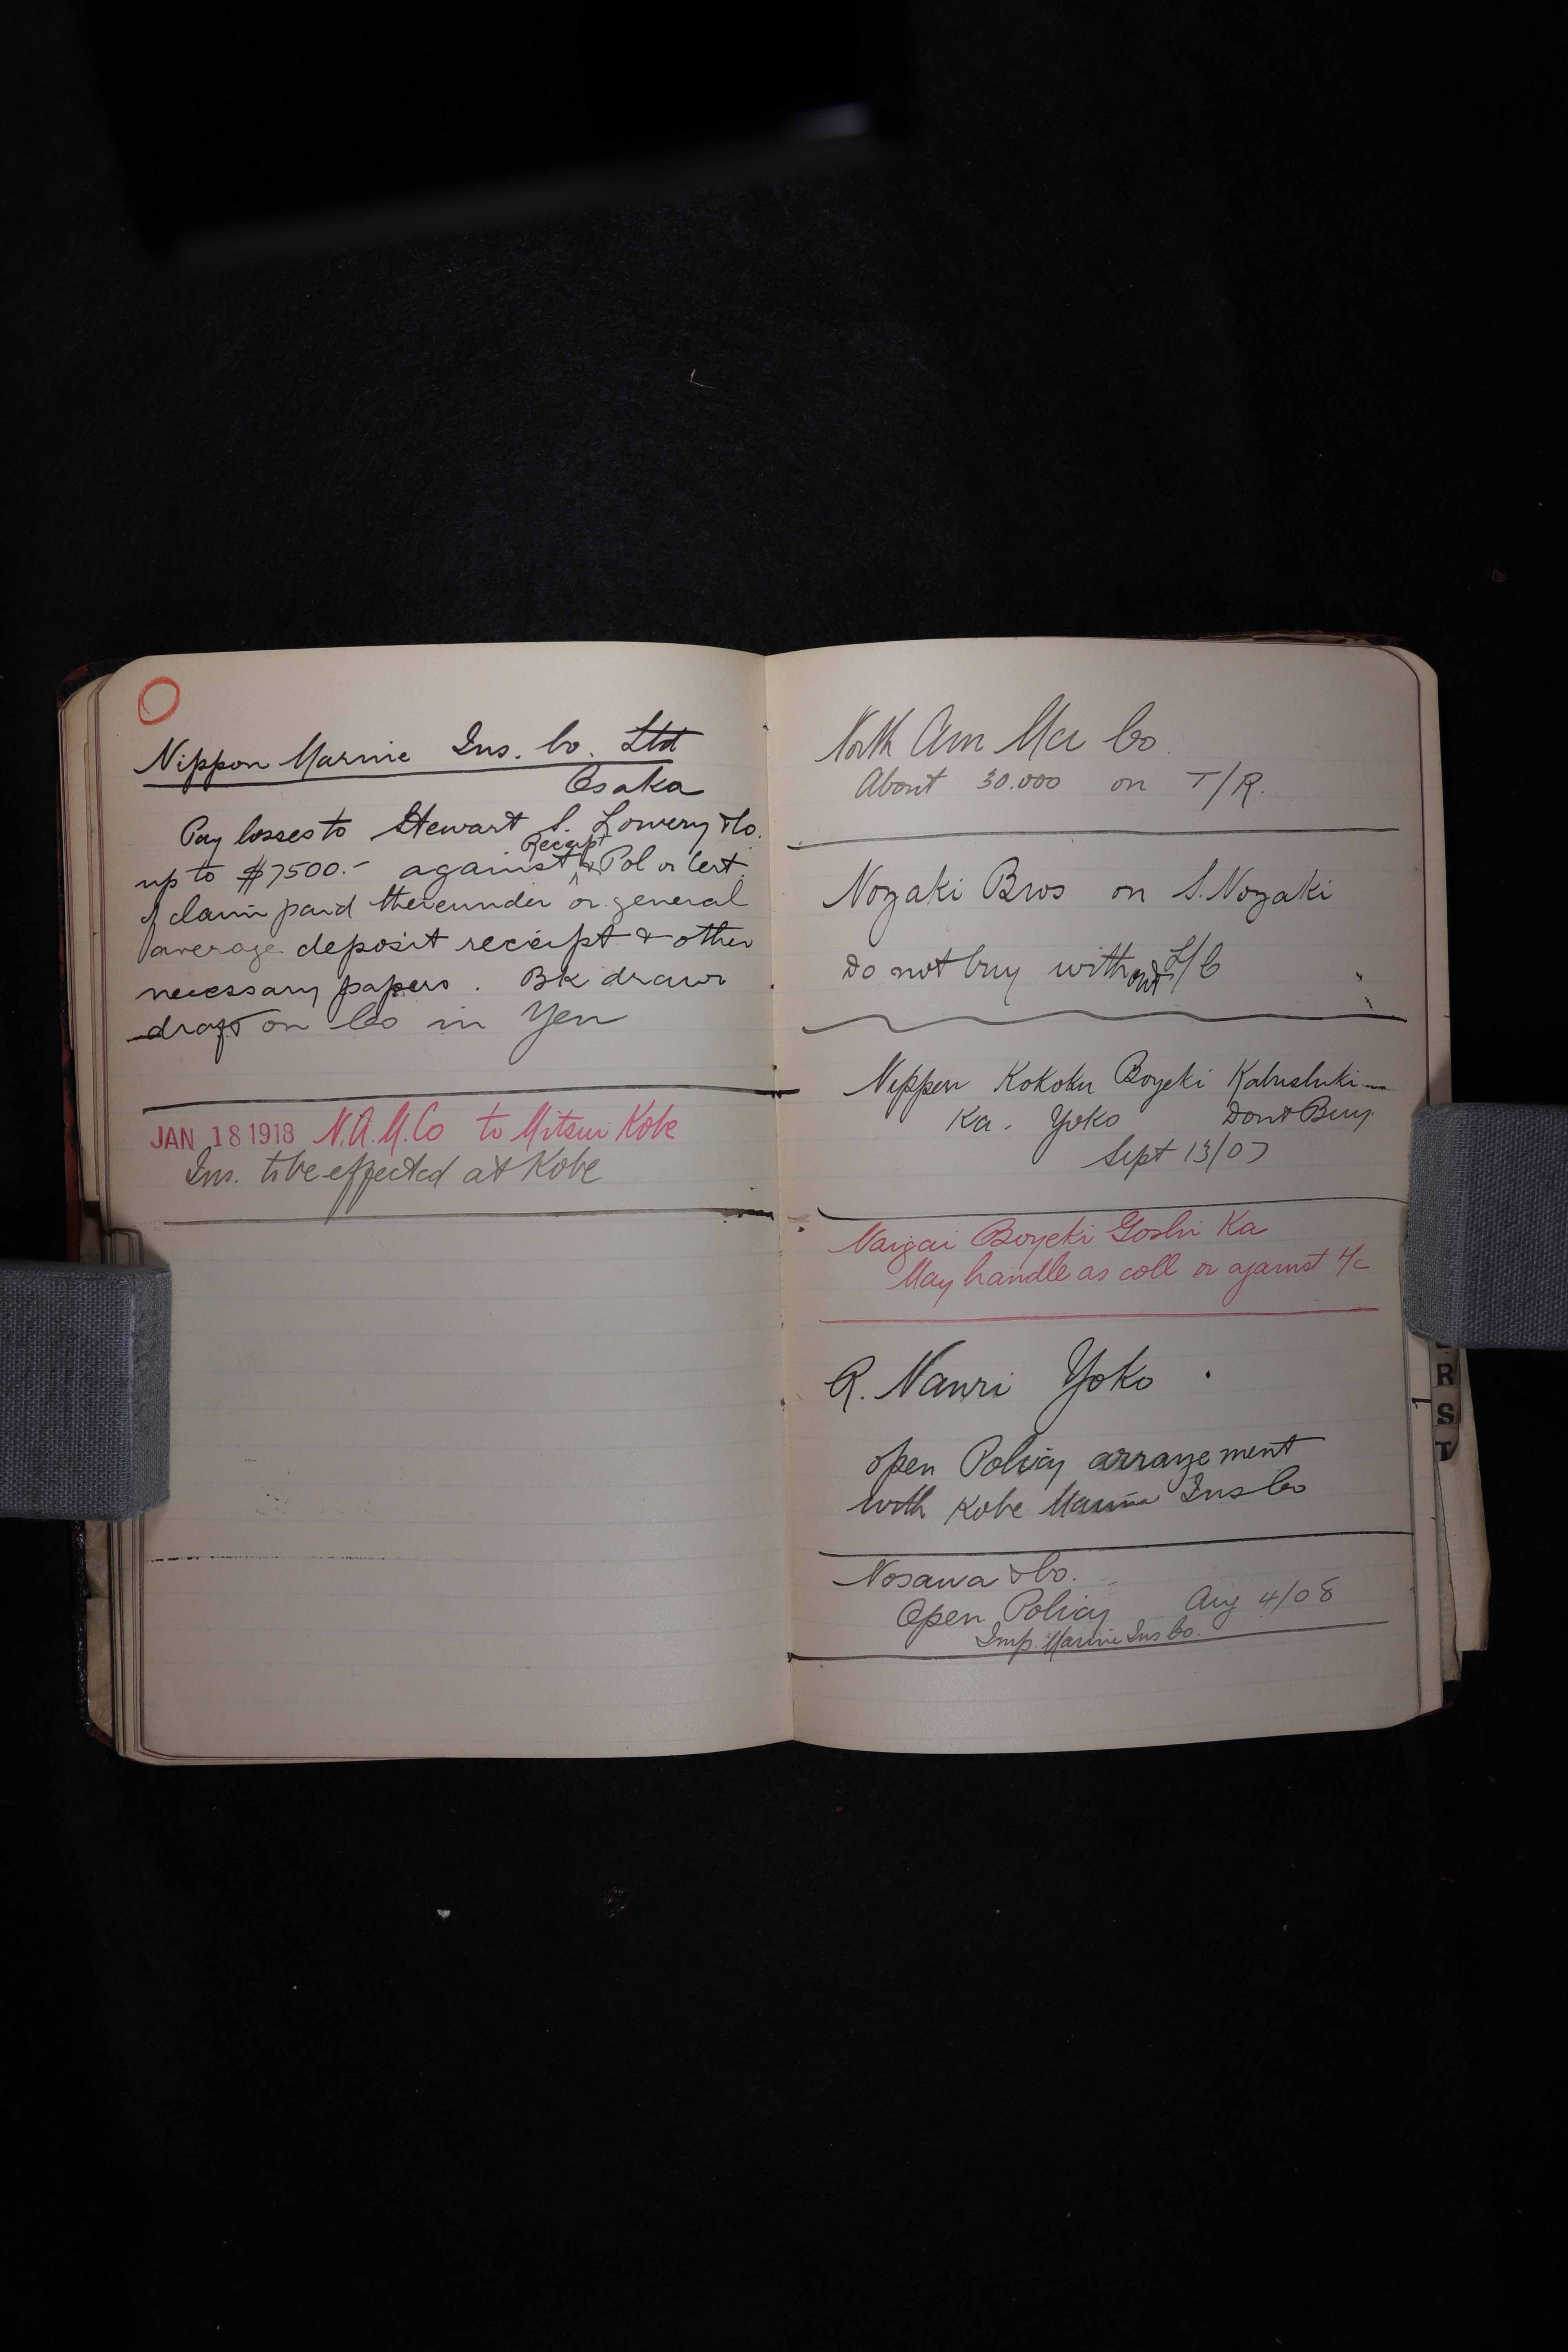 Nippon Marine Ins. Co. Ltd
Osaka
Pay losses to Stewart S. Lowery & Co.
Receipt
up to $7500.- against & Pol or Cert.
of claim paid thereunder or general
average deposit receipt & other
necessary papers. Bk draws
draft on Co in Yen
JAN 18 1918 N.A.M.Co to Mitsui Kobe
Ins. to be effected at Kobe
North Am Mer Co
About 30.000 on T/R.
Nozaki Bros on S. Nozaki
Do not buy without L/C
Nippon Kokoku Boyeki Kabushiki
Ka. Yoko Dont Buy
Sept 13/07
Naigai Boyeki Goshi Ka
May handle as coll or against
R. Nanri Yoko
open Policy arrangement
with Kobe Marine Ins Co
Nosawa & Co.
Open Policy Aug 4/08
Imp. Marine Ins Co.
R
S
T